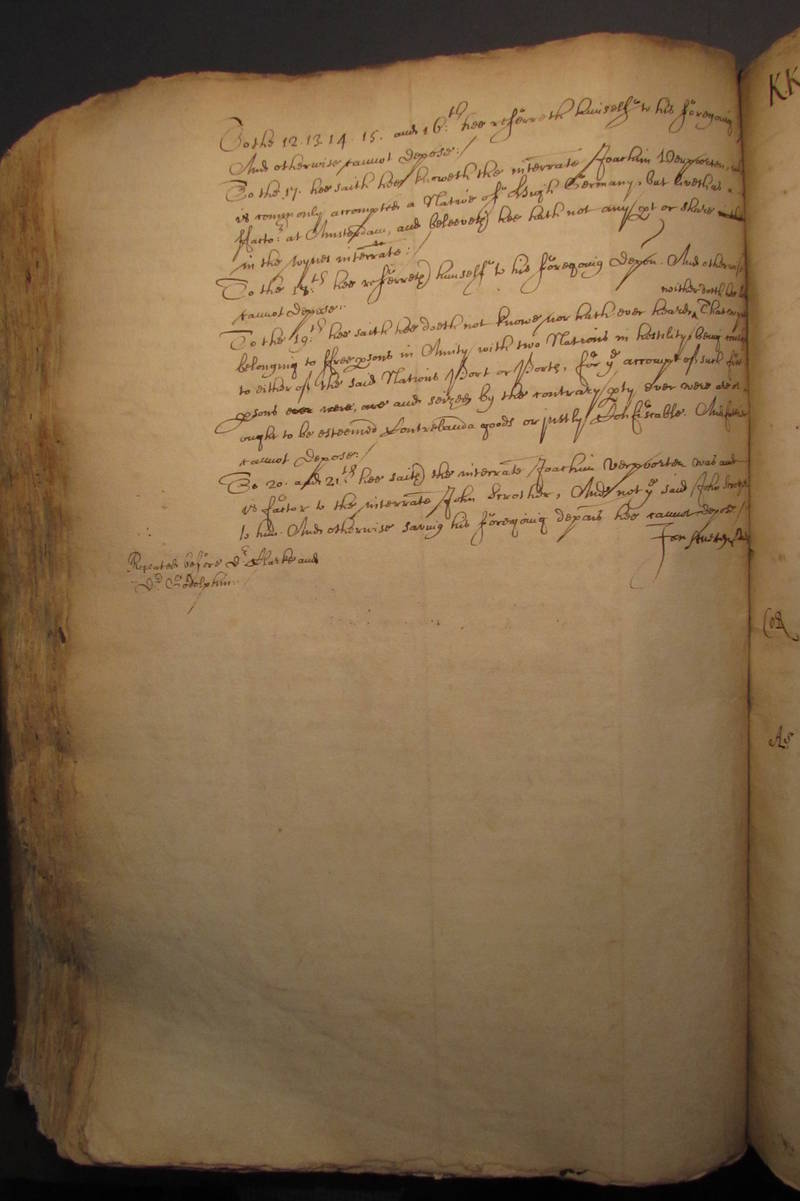 To the 12. 13. 14. 15. and 16.th hee referreth himselfe to his foregoing
And otherwise cannot depose./
To the 17. hee saith hee knoweth the interrate Joachim Verporten,
is comonly accompted a Native of Hugh Germany, but liveth as a
ffactor at Amsterdam, and beleeveth hee hath not any pt or share
in the wynes interrate:/
To the 18.th hee referreth himselfe to his foregoing depon. And otherwise
cannot depose.
neither doth hee
To the 19.th hee saith hee doeth not knowe nor hath ever heard That
belonging to ffree psons in Amity with two Nations in hostility, being
to either of the said Nations Port or Ports, for ye accompt of such free
psons ever were, are and seized by the contrary pty ever were or
ought to be esteemed Contrebanda goods or justly Confiscable. And
cannot depose./
To 20. and 21.th hee saith the interrate Joachim Verporten was and
is factor to the interrate John Strother, And not ye said John
to him. And otherwise saving his foregoing depons hee cannot depose/
Jan
Repeated before Dr. Clarke and
Dr. Godolphin.
KK
As